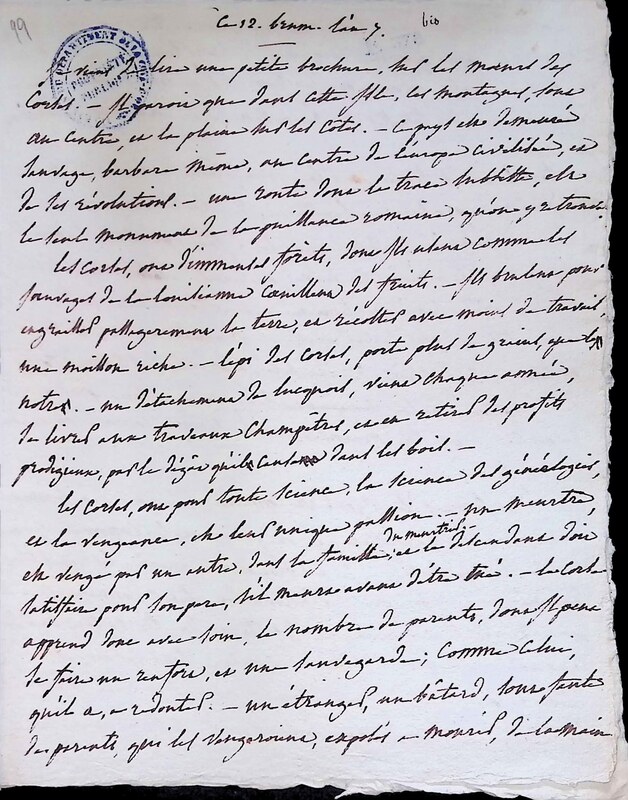 99
ce 12. brum. l'an 7.
bis
je viens de lire une petite brochure, sur les mœurs des
Corses. — Il paroit que dans cette isle, les montagnes, sont
au centre, et la plaine sur les côtes. — ce pays est demeuré
sauvage, barbare même, au centre de l'europe civilisée, et
de ses révolutions. — une route dont la trace subsiste, est
le seul monument de la puissance romaine, qu'on y retrouve.
les corses, ont d'immenses forêts, dont ils usent comme les
sauvages de la louisianne cueillent des fruits. — Ils brulent pour
engraisser passagerement la terre, et récolter avec moins de travail,
une moisson riche. — l'épi des corses, porte plus de grains, que les
notres. — un détachement de lucquois, vient chaque année,
se livrer aux travaux champêtres, et en retire des profits
prodigieux, par le dégât qu'ils causent dans les bois. —
les corses, ont pour toute science, la science des généalogies,
et la vengeance, est leur unique passion. — un meurtre,
est vengé par un autre, dans la famille du meurtrier. — et le descendant doit
satisfaire pour son pere, s'il meurt avant d'être tué. — le corse
apprend donc avec soin, le nombre de parents, dont il peut
se faire un renfort, et une sauvegarde; comme celui,
qu'il a, a redouter. — un étranger, un bâtard, sont faute
de parents, qui les vengeroient, exposés a mourir, de la main